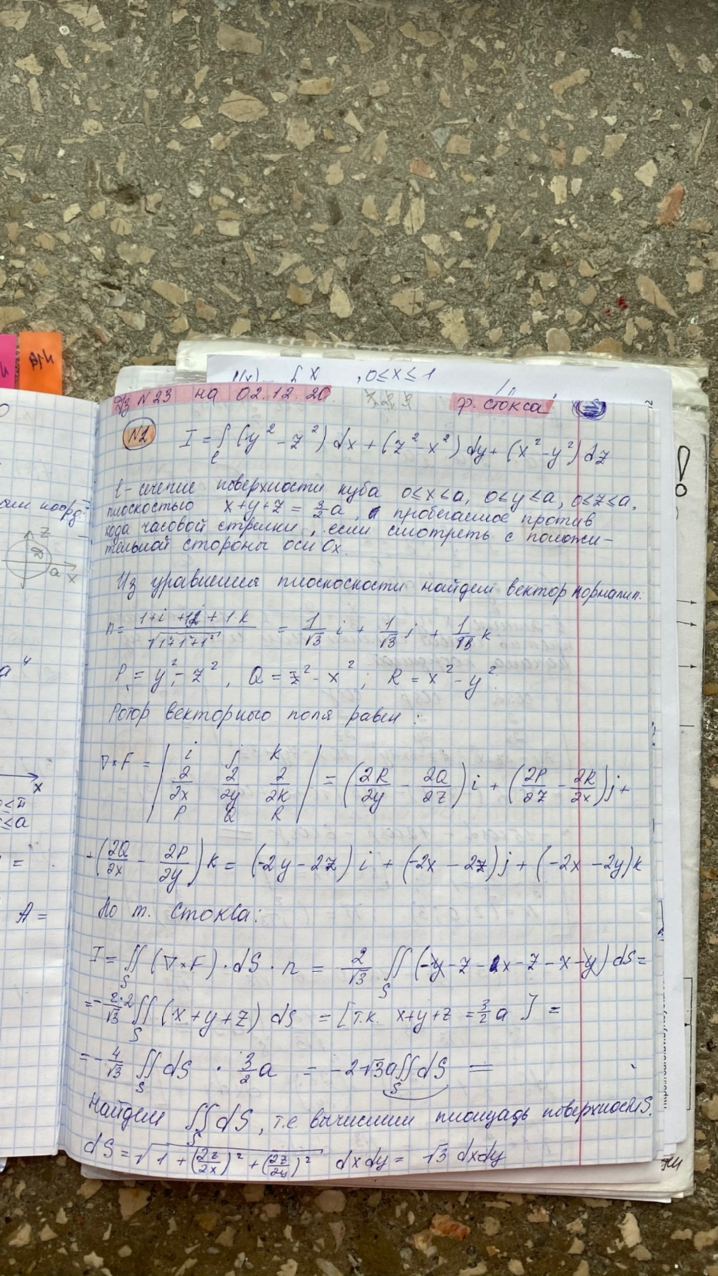 , 0≤x≤1
ДЗ №23 на 02.12.20
ф. Стокса
№1
I = ∫ (y² - z²) dx + (z² - x²) dy + (x² - y²) dz
ℓ
ℓ - сечение поверхности куба 0≤x≤a, 0≤y≤a, 0≤z≤a,
плоскостью x+y+z = 3/2 a, пробегаемое против
хода часовой стрелки, если смотреть с положи-
тельной стороны оси Ox.
Из уравнения плоскости найдем вектор нормали.
n = (1·i + 1j + 1·k)/√(1+1+1²) = 1/√3 i + 1/√3 j + 1/√3 k
P = y² - z², Q = z² - x²; R = x² - y².
Ротор векторного поля равен:
∇×F = | i j k |
| ∂/∂x ∂/∂y ∂/∂k | = (∂R/∂y - ∂Q/∂z) i + (∂P/∂z - ∂R/∂x) j +
| P Q R |
+ (∂Q/∂x - ∂P/∂y) k = (-2y - 2z) i + (-2x - 2z) j + (-2x - 2y) k
По т. Стокса:
I = ∬ (∇×F)·dS·n = 2/√3 ∬ (-y - z - x - z - x - y) dS =
S S
= - 2·2/√3 ∬ (x+y+z) ds = [т.к. x+y+z = 3/2 a] =
S
= - 4/√3 ∬ dS · 3/2 a = -2√3 a ∬ dS =
S S
Найдем ∬ dS, т.е вычислим площадь поверхности S.
S
dS = √(1 + (∂z/∂x)² + (∂z/∂y)²) dxdy = √3 dxdy
коорд
z
a x
x
A =